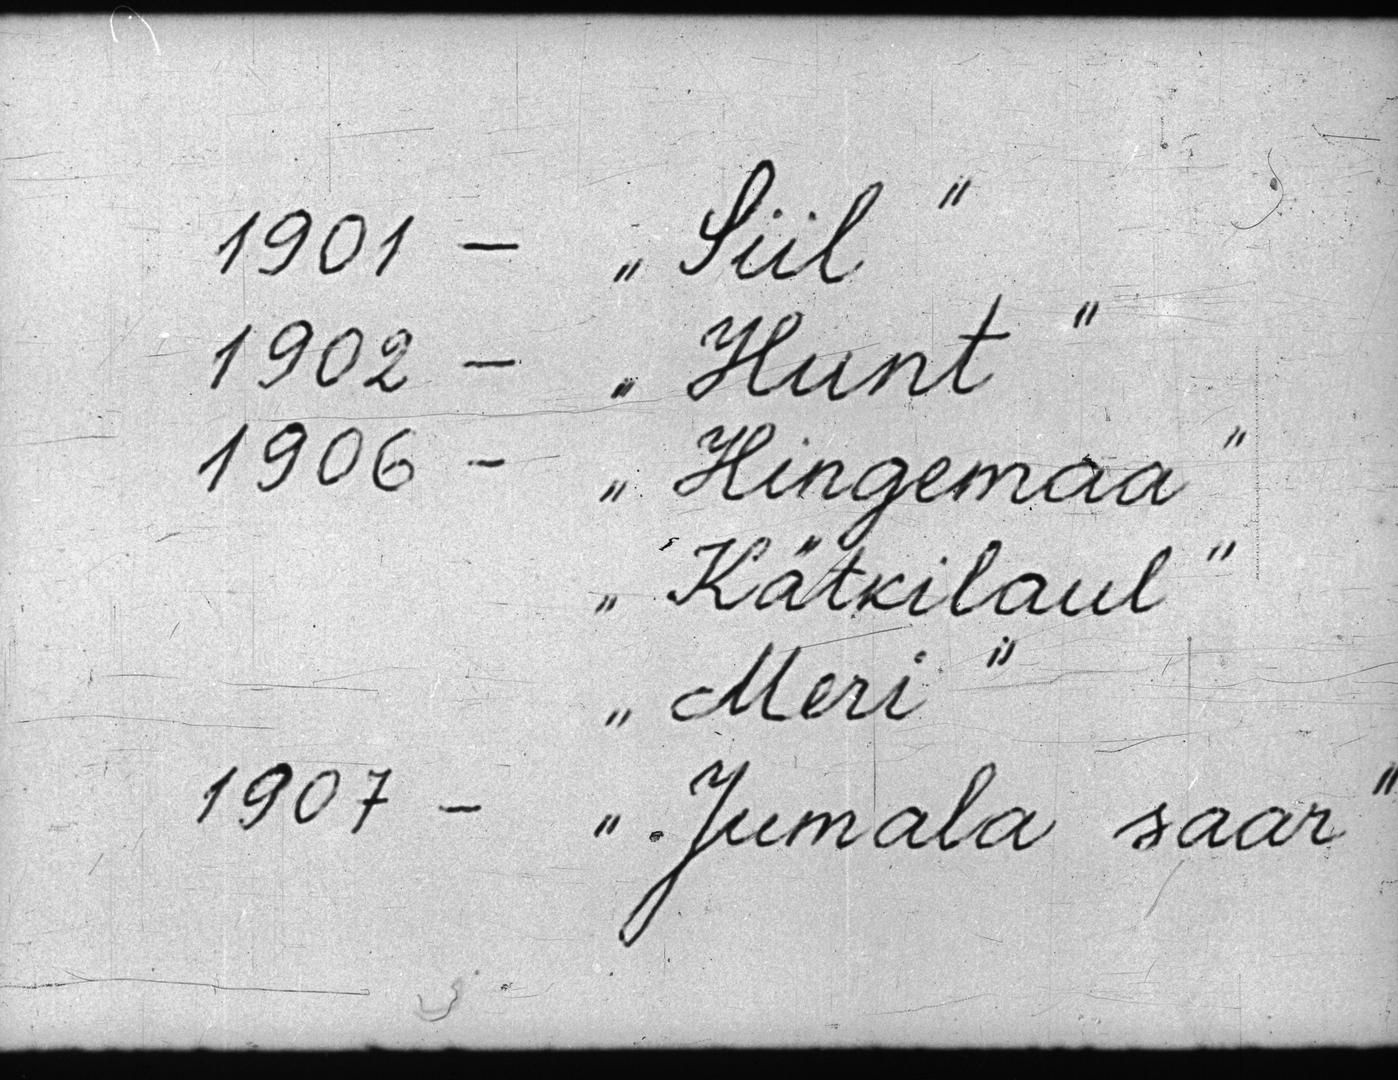 1901 – „Siil"
1902 – „Hunt"
1906 – „Hingemaa"
„Kätkilaul"
„Meri"
1907 – „Jumala saar"